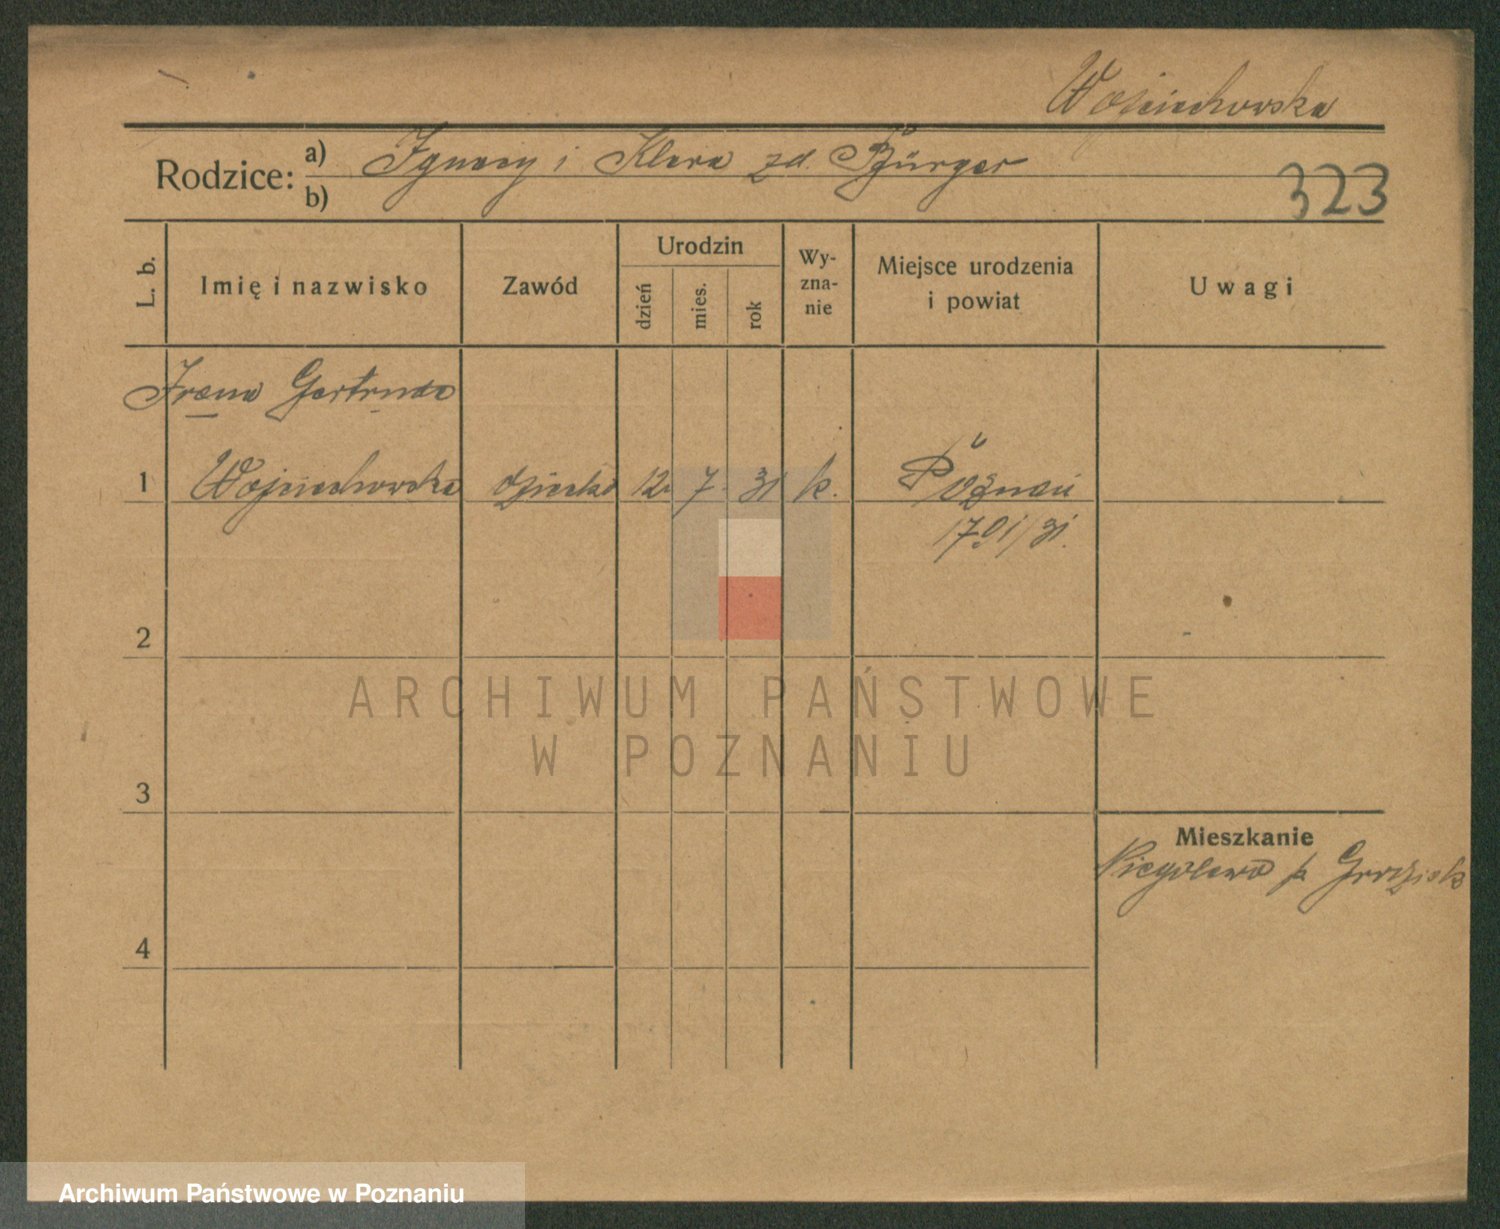 Wojciechowska
Rodzice: a) Ignacy i Klara zd. Bürger
b)
323
L. b.
Imię i nazwisko
Zawód
Urodzin
dzień
mies.
rok
Wy-
zna-
nie
Miejsce urodzenia
i powiat
Uwagi
Irena Gertruda
1 Wojciechowska dziecko 12 7 31 k. Poznań
1701/31.
2
3
4
Mieszkanie
Niegolewo p. Grodzisk
ARCHIWUM PAŃSTWOWE
W POZNANIU
Archiwum Państwowe w Poznaniu